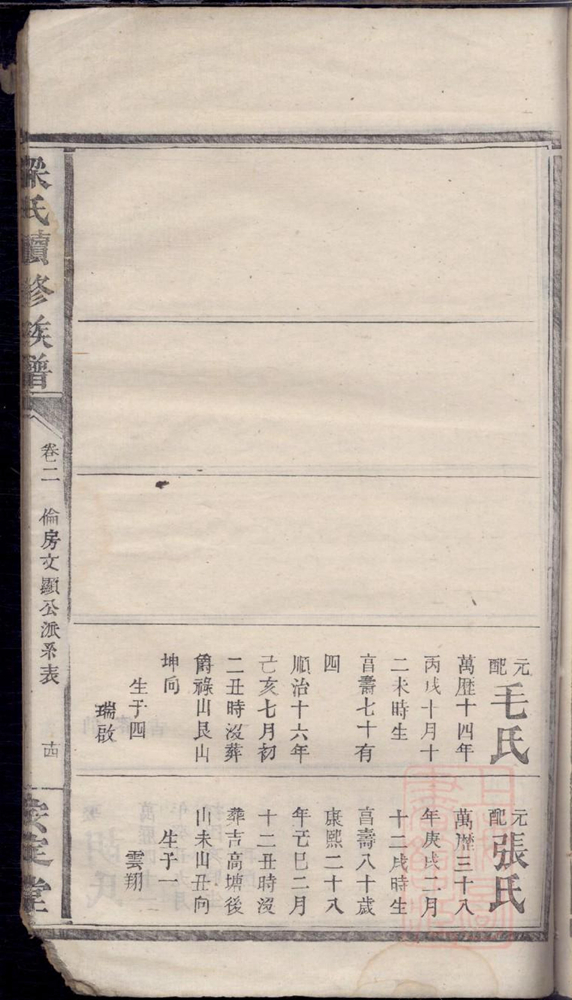 元配毛氏
萬歷十四年
丙戌十月十
二未時生
亯壽七十有
四
順治十六年
己亥七月初
二丑時沒葬
爵祿山艮山
坤向
生子四
瑞啟
元配張氏
萬歷三十八
年庚戌二月
十二戌時生
亯壽八十歲
康熙二十八
年己巳二月
十二丑時沒
葬吉高塘後
山未山丑向
生子一
雲翔
氏續修族譜
卷二
倫房文顯公派系表
十四
堂